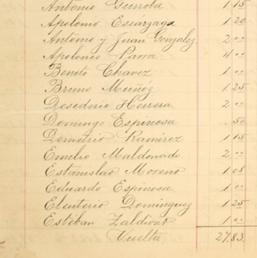 Antonio Gurrola 1.15
Apolonio Escarzaga 1.20
Antonio y Juan Gonzalez 2.00
Apolonio Parra 4.00
Benito Chavez 1.00
Bruno Muñoz 1.25
Desederio Herrera 2.00
Domingo Espinosa .50
Demetrio Ramirez 1.15
Emelio Maldonado 2.00
Estanislao Moreno 1.08
Eduardo Espinosa 1.00
Eleuterio Dominguez 1.25
Esteban Zaldivar 1.00
Vuelta 27.83